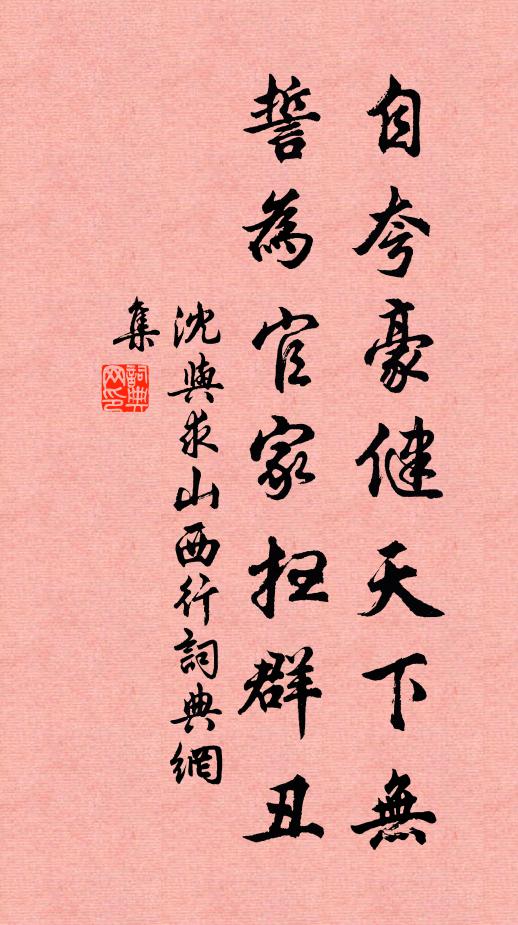 自夸豪健天下無
誓為官家扫群丑
沈與求山西行詞典網
集
詞典
网印